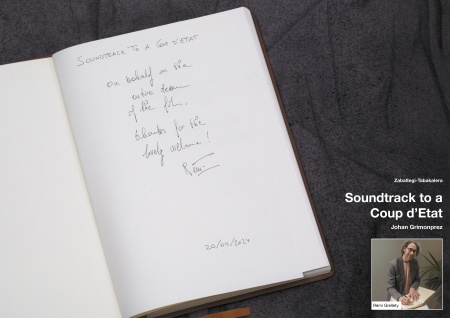 SOUNDTRACK TO A COUP D'ETAT
On behalf on the
entire team
of the film.
thanks for the
lovely welcome!
Rémi
20/09/2024
Zabaltegi-Tabakalera
Soundtrack to a
Coup d'Etat
Johan Grimonprez
Remi Grellety